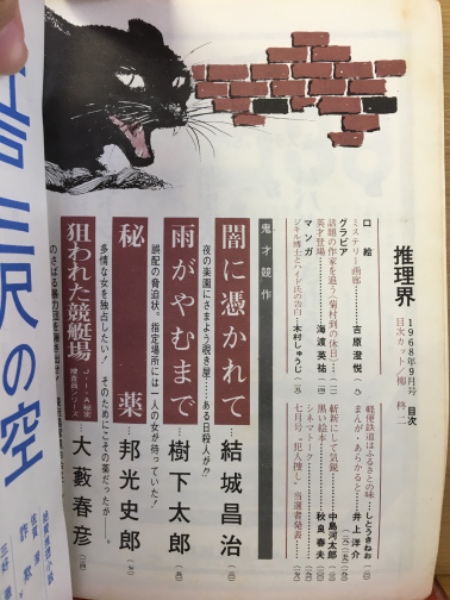 推理界
1968年9月号 目次
目次カット/柳 柊二
口絵
ミステリー画廊……吉原澄悦
グラビア
話題の作家を追う〈菊村到の休日〉
英才登場……海渡英祐
マンガ
ジキル博士とハイド氏の告白……木村しゅうじ
軽便鉄道はふるさとの味……しとうきねお
まんが・あらかると……井上洋介
斬新にして気鋭……中島河太郎
黒い絵本……秋良春夫
シネマトーク
七月号“犯人捜し”当選者発表
鬼才競作
闇に憑かれて……結城昌治
夜の楽園にさまよう覗き屋……ある日殺人が!?
雨がやむまで……樹下太郎
誤配の脅迫状。指定場所には一人の女が待っていた!
秘薬……邦光史郎
多情な女を独占したい! そのためにこその薬だったが――。
狙われた競艇場
J・I・A秘密捜査員シリーズ
大藪春彦
のさばる暴力団を
三沢の空